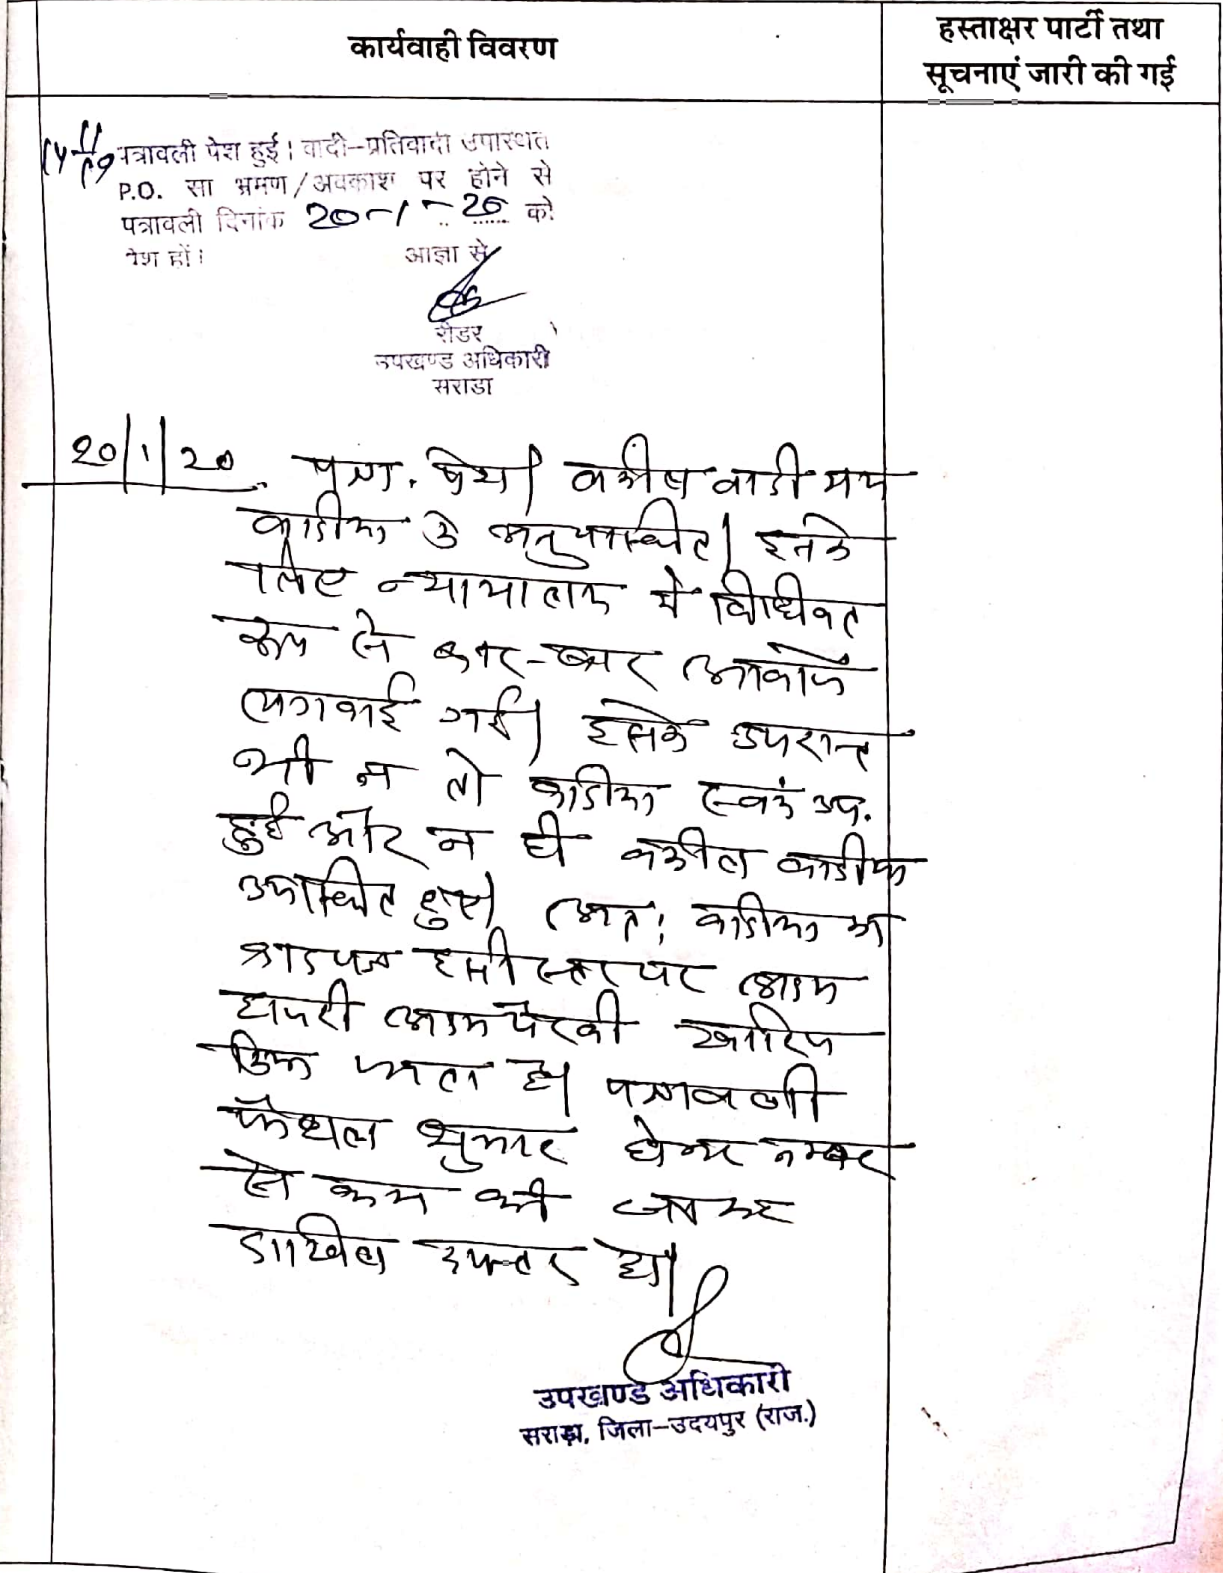 कार्यवाही विवरण
हस्ताक्षर पार्टी तथा
सूचनाएं जारी की गई
14/11/19
पत्रावली पेश हुई। वादी–प्रतिवादी उपस्थित
P.O. सा भ्रमण/अवकाश पर होने से
पत्रावली दिनांक 20-1-20 को
पेश हों।
आज्ञा से
रीडर
उपखण्ड अधिकारी
सराडा
20/1/20 पत्रा. पेश। वकील वादी मय
वादीया अनुपस्थित। इनके
लिए न्यायालय में विधिवत
रूप से बार-बार आवाजें
लगवाई गई। इसके उपरान्त
भी न तो वादीया स्वयं उप.
हुई और न ही वकील वादीया
उपस्थित हुए। अतः वादीया का
वादपत्र इसी स्तर पर अदम
हाजरी अदम पैरवी खारिज
किया जाता है। पत्रावली
फैसल शुमार होकर नम्बर
से कम की जाकर
दाखिल दफ्तर हो।
उपखण्ड अधिकारी
सराडा, जिला–उदयपुर (राज.)